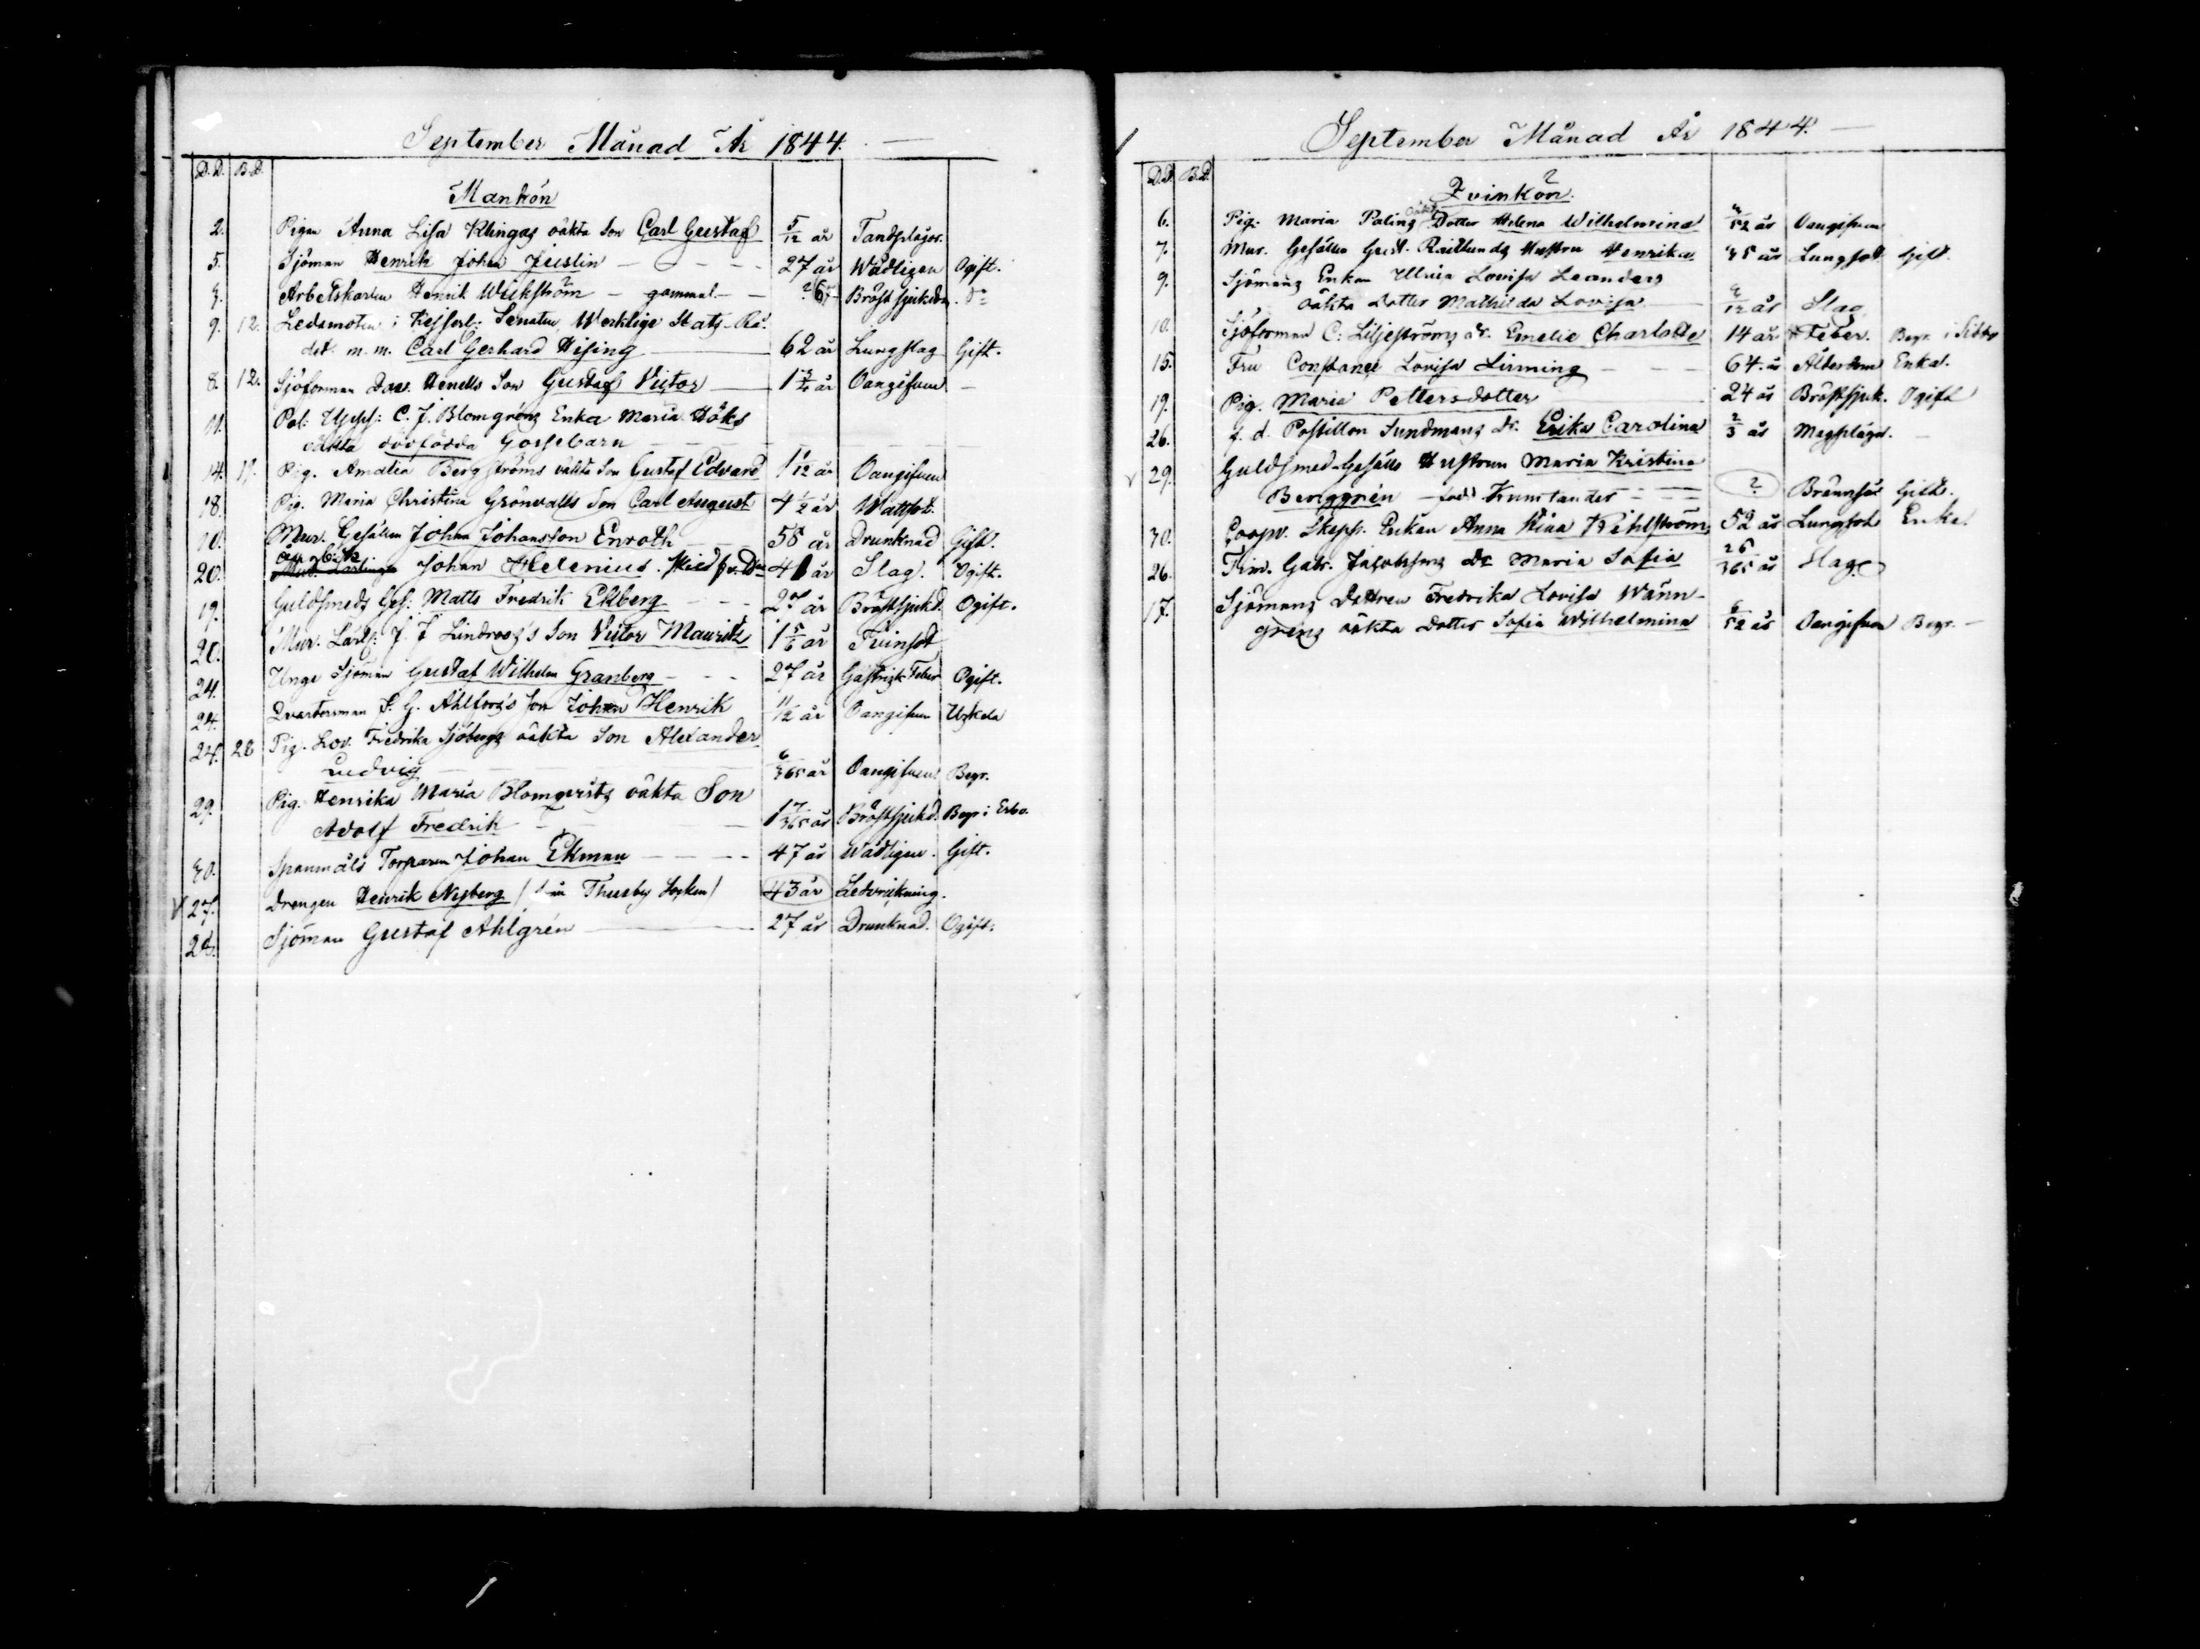 September Månad År 1844.
D.D. B.D.
Mankön
2. Pigan Anna Lisa Klingas oäkta Son Carl Gustaf 5/12 år Tandplågor.
5. Sjöman Henrik Johan Juslin 27 år Wådligen Ogift.
Arbetskarlen Henrik Wickström - gammal - ? 65 Bröstsjukdom. Do
9. 12. Ledamoten i Kejserl: Senaten, Werklige Stats-Rå-
det m. m. Carl Gerhard Hising 62 år Lungslag Gift.
8. 12. Sjöforman Dav. Henells Son Gustaf Victor 1 3/4 år Oangifven -
11. Pol: Upps: C. J. Blomgréns Enka Maria Höks
oäkta dödfödda Gossebarn
14. 17. Pig. Amalia Bergströms oäkta Son Gustaf Edvard 1 1/12 år Oangifven
18. Pig. Maria Christina Grönvalls Son Carl August 4 1/2 år Wattsot.
10. Mur. Gesällen Johan Johansson Enroth 55 år Drunknad Gift.
20. Johan Helenius. 41 år Slag. Ogift.
19. Guldsmeds Ges: Matts Fredrik Ekberg 27 år Bröstsjukd. Ogift.
20. Mur. Lärl: J. F. Lindroos's Son Victor Mauritz 1 5/6 år Tvinsot
24. Unge Sjöman Gustaf Wilhelm Granberg 27 år Gastrisk Feber Ogift.
24. Qvartersman F. G. Ahlfors's Son Johan Henrik 11/12 år Oangifven Uskela
24. 28 Pig. Lov. Fredrika Sjöbergs oäkta Son Alexander
Ludvig 6/365 år Oangifven. Begr.
29. Pig. Henrika Maria Blomqvists oäkta Son
Adolf Fredrik 17/365 år Bröstsjukd. Begr. i Esbo.
30. Spanmåls Torparen Johan Ekman 47 år Wådligen. Gift.
27. Drengen Henrik Nyberg / från Thusby Socken / 43 år Ledvrickning.
28. Sjöman Gustaf Ahlgrén 27 år Drunknad. Ogift.
September Månad År 1844.
D.D. B.D.
Qvinkön.
6. Pig. Maria Palins Oäkta Dotter Helena Wilhelmina 4/52 år Oangifven
7. Mur. Gesällen Gust. Hustru Henrika 45 år Lungsot Gift.
9. Sjömans Enkan Ulrica Lovisa Leanders
oäkta Dotter Mathilda Lovisa /12 år Slag.
10. Sjöforman C: Liljeströms dr. Emelie Charlotte 14 år Feber. Begr. i Sibbo
15. Fru Constance Lovisa Lirming 64. år Ålderdom Enka.
19. Pig. Maria Pettersdotter 24 år Bröstsjuk. Ogift
26. f. d. Postillon Sundmans dr. Erika Carolina 2/3 år Magplågor. -
29. Guldsmed-Gesälls Hustrun Maria Kristina
Berggrén - född ? Brännsår Gift.
30. Coopv. Skepp. Enkan Anna Stina Kihlström 52 år Lungsot Enka.
26. Tim. Gabr. Jacobsons Dr Maria Sofia 26/365 år Slag
17. Sjömans Dottren Fredrika Lovisa Wänn-
gréns oäkta Dotter Sofia Wilhelmina 6/52 år Oangifven Begr. -